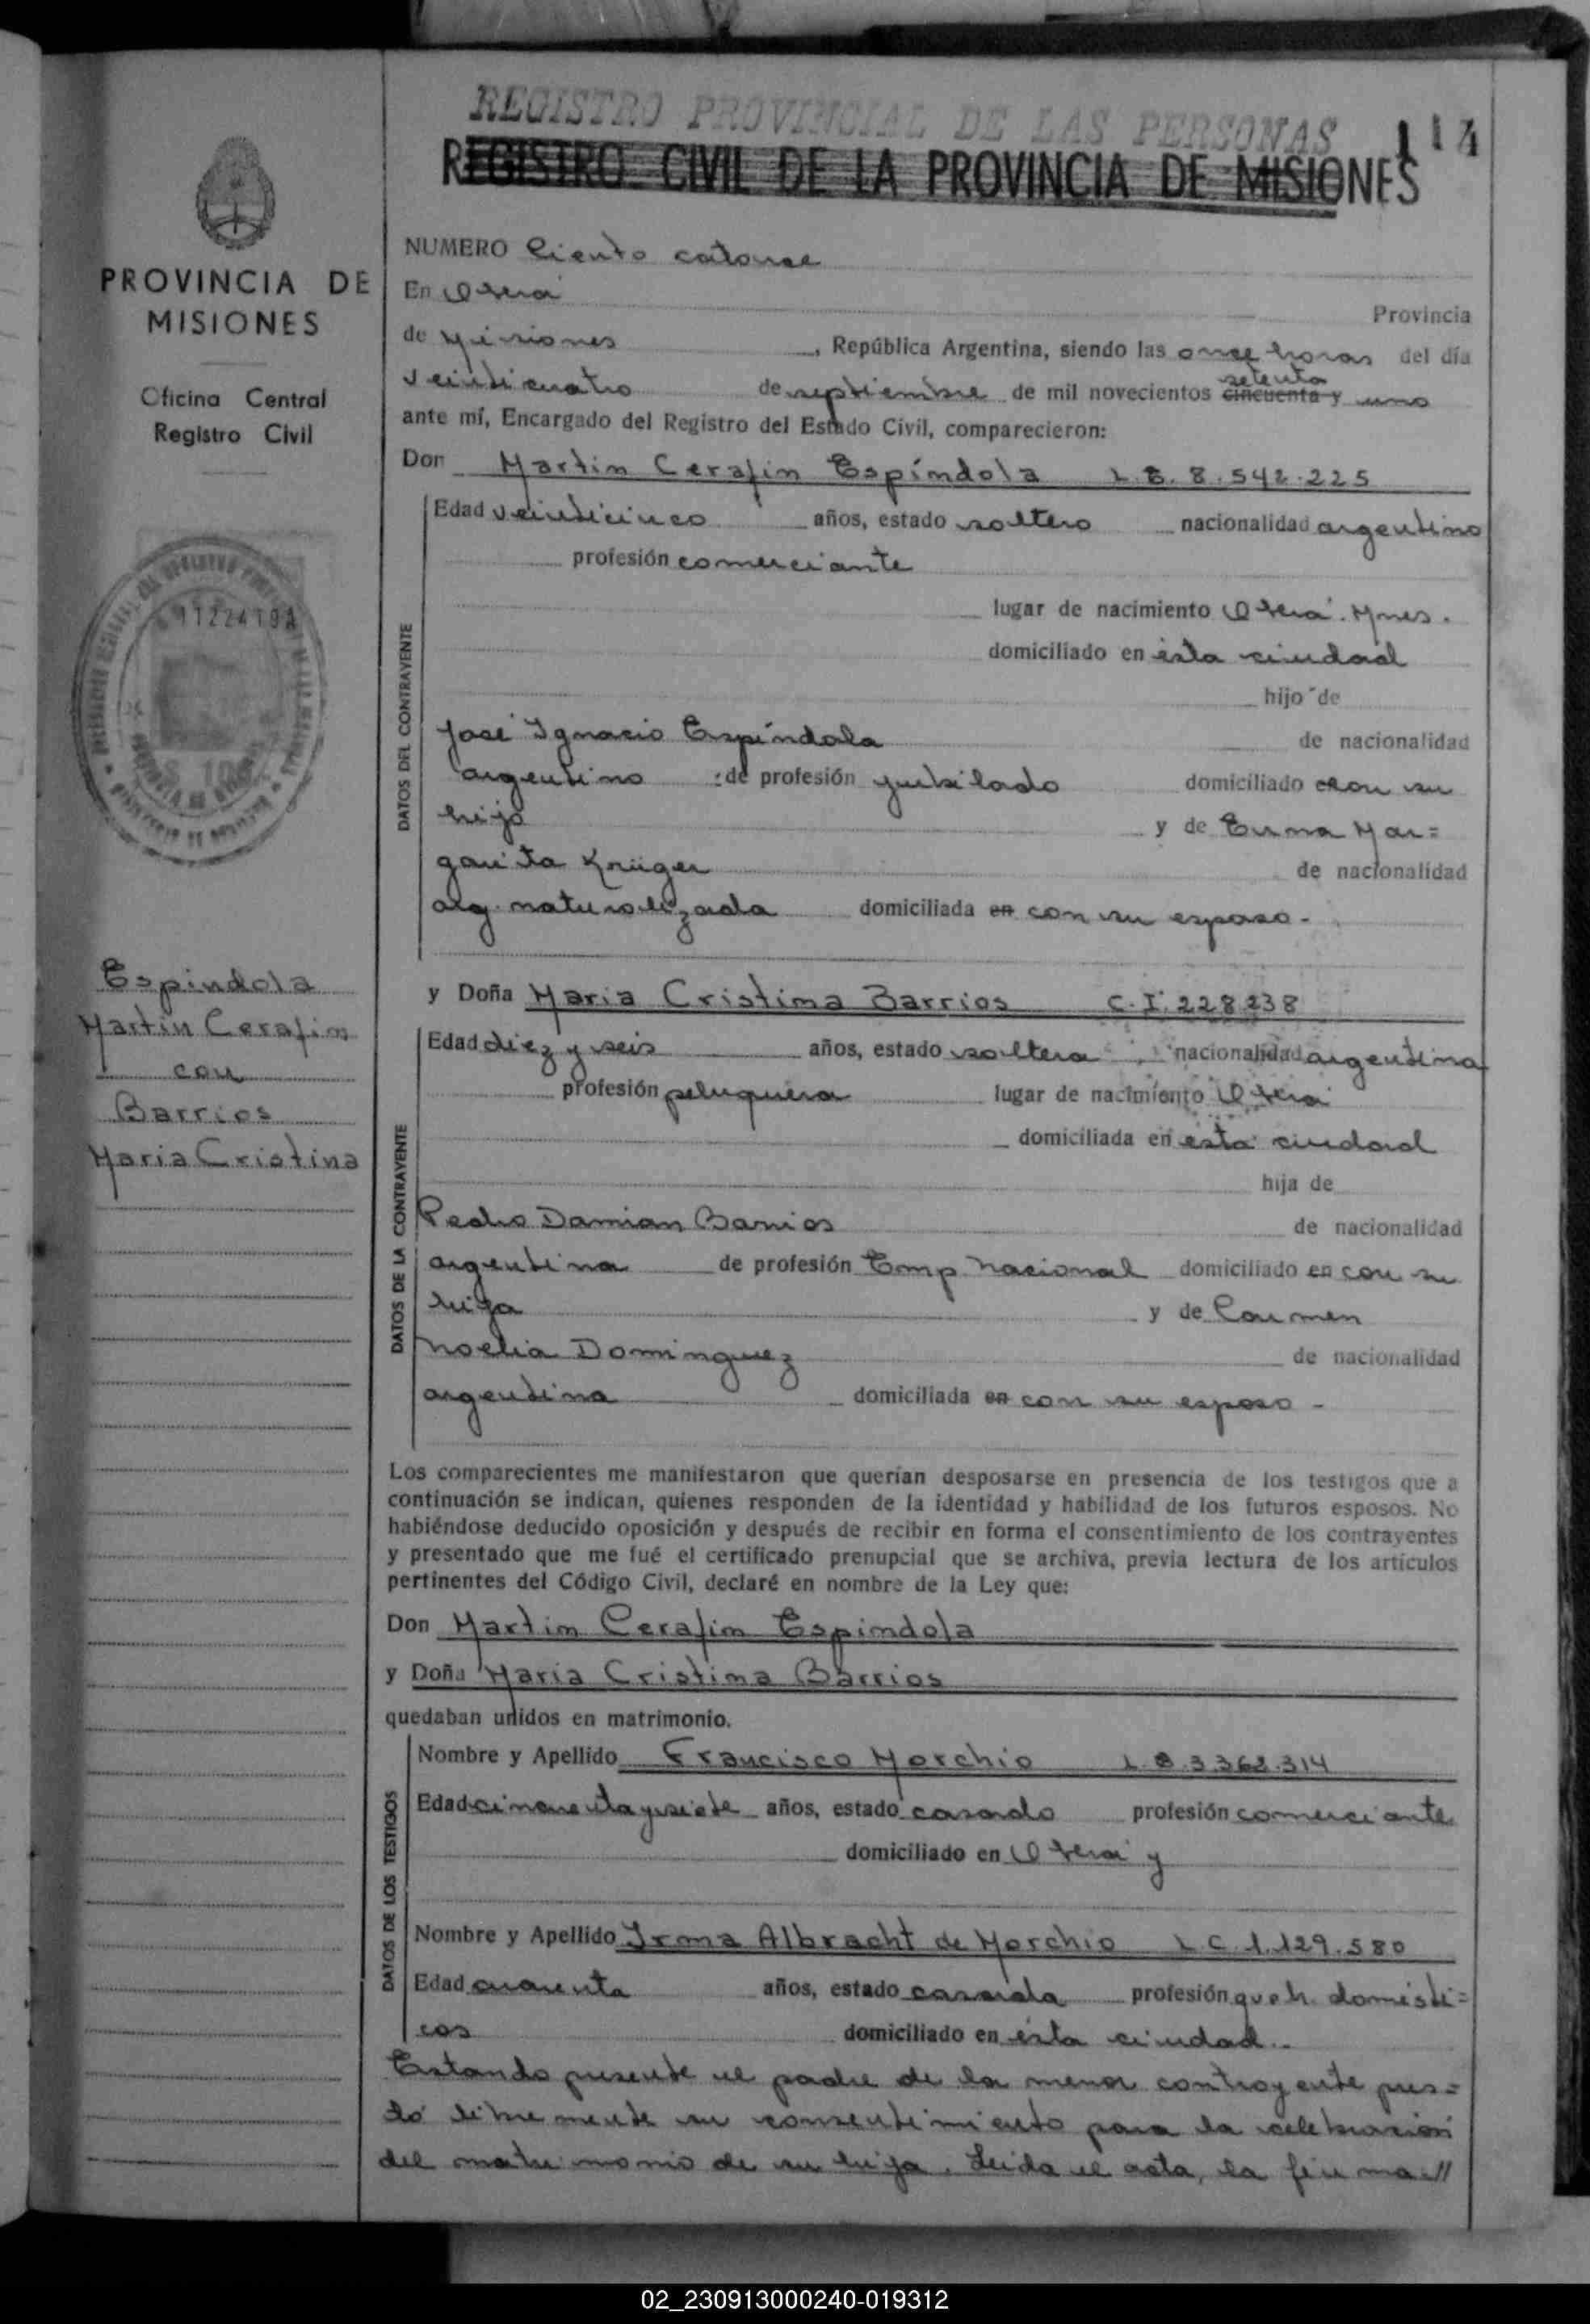 REGISTRO PROVINCIAL DE LAS PERSONAS
114
REGISTRO CIVIL DE LA PROVINCIA DE MISIONES
PROVINCIA DE
MISIONES
Oficina Central
Registro Civil
11224194
Espindola
Martin Cerafin
con
Barrios
Maria Cristina
NUMERO Ciento catorce
En Oberá Provincia
de Misiones, República Argentina, siendo las once horas del día
veinticuatro de septiembre de mil novecientos cincuenta y setenta uno
ante mí, Encargado del Registro del Estado Civil, comparecieron:
Don Martin Cerafin Espíndola L.E. 8.542.225
DATOS DEL CONTRAYENTE
Edad veinticinco años, estado soltero nacionalidad argentino
profesión comerciante
lugar de nacimiento Oberá. Mnes.
domiciliado en ésta ciudad
hijo de
José Ignacio Espíndola de nacionalidad
argentino de profesión jubilado domiciliado con su
hijo y de Erma Mar=
garita Krüger de nacionalidad
arg. naturalizada domiciliada en con su esposo.
y Doña Maria Cristina Barrios C.I. 228.238
DATOS DE LA CONTRAYENTE
Edad diez y seis años, estado soltera nacionalidad argentina
profesión peluquera lugar de nacimiento Oberá
domiciliada en ésta ciudad
hija de
Pedro Damian Barrios de nacionalidad
argentina de profesión Emp. Nacional domiciliado en con su
hija y de Carmen
Noelia Dominguez de nacionalidad
argentina domiciliada en con su esposo -
Los comparecientes me manifestaron que querían desposarse en presencia de los testigos que a
continuación se indican, quienes responden de la identidad y habilidad de los futuros esposos. No
habiéndose deducido oposición y después de recibir en forma el consentimiento de los contrayentes
y presentado que me fué el certificado prenupcial que se archiva, previa lectura de los artículos
pertinentes del Código Civil, declaré en nombre de la Ley que:
Don Martin Cerafin Espindola
y Doña Maria Cristina Barrios
quedaban unidos en matrimonio.
DATOS DE LOS TESTIGOS
Nombre y Apellido Francisco Morchio L.E. 3.362.314
Edad cincuenta y siete años, estado casado profesión comerciante
domiciliado en Oberá y
Nombre y Apellido Irma Albracht de Morchio L.C. 1.129.580
Edad cuarenta años, estado casada profesión queh. domésti=
cos domiciliado en ésta ciudad..
Estando presente el padre de la menor contrayente pres=
tó libremente su consentimiento para la celebración
del matrimonio de su hija. Leida el acta, la firma //
02_230913000240-019312